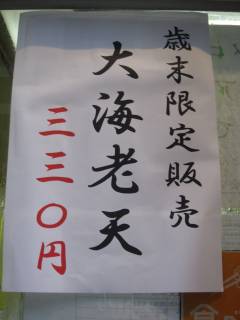 歳末限定販売
大海老天
三三〇円